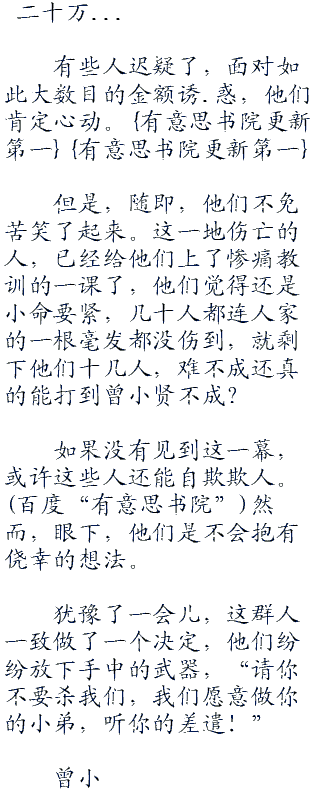 二十万...
有些人迟疑了，面对如
此大数目的金额诱.惑，他们
肯定心动。{有意思书院更新
第一}{有意思书院更新第一}
但是，随即，他们不免
苦笑了起来。这一地伤亡的
人，已经给他们上了惨痛教
训的一课了，他们觉得还是
小命要紧，几十人都连人家
的一根毫发都没伤到，就剩
下他们十几人，难不成还真
的能打到曾小贤不成？
如果没有见到这一幕，
或许这些人还能自欺欺人。
(百度“有意思书院”)然
而，眼下，他们是不会抱有
侥幸的想法。
犹豫了一会儿，这群人
一致做了一个决定，他们纷
纷放下手中的武器，“请你
不要杀我们，我们愿意做你
的小弟，听你的差遣！”
曾小